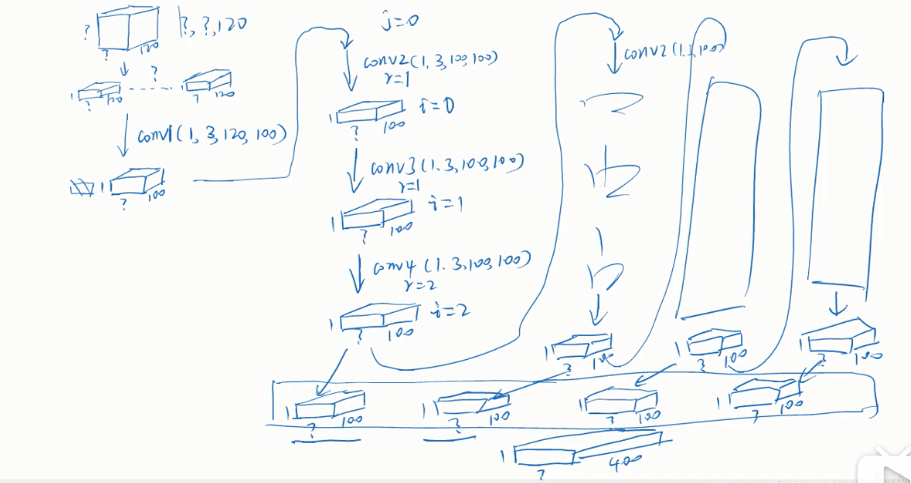 ? ?, ?, 120
? 120
?
? 120 ? 120
conv1(1, 3, 120, 100)
1 ? 100
j=0
conv2(1, 3, 100, 100)
r=1
1 ? 100 i=0
conv3(1.3,100,100)
r=1
1 ? 100 i=1
conv4(1.3,100,100)
r=2
1 ? 100 i=2
conv2(1.
1 ? 100
1 ? 100
1 ? 100
1 ? 100
1 ? 100
1 ? 100
1 ? 100
1 ? 400